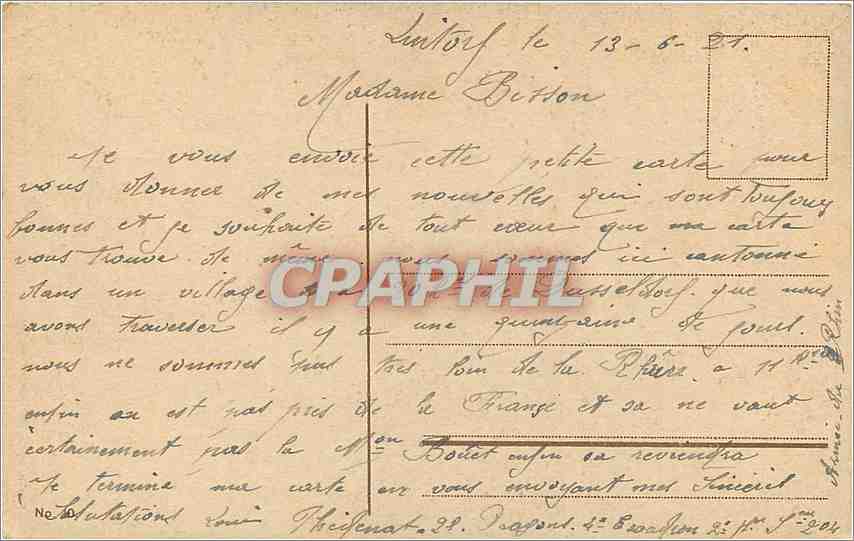 Lintorf le 13-6-21.
Madame Bisson
Je vous envoie cette petite carte pour
vous donner de mes nouvelles qui sont toujours
bonnes et je souhaite de tout cœur que ma carte
vous trouve de même, nous sommes ici cantonné
dans un village de Dusseldorf. que nous
avons traverser il y a une quinzaine de jours.
nous ne sommes pas tres loin de la Rhûrr a 11
enfin on est pas pres de la France et sa ne vaut
certainement pas la Mon Bouet enfin sa reviendra
Je termine ma carte en vous envoyant mes sinceres
Salutations Louis 28. Dragons. 4e Escadron 2e 204
Armée du Rhin
No
CPAPHIL